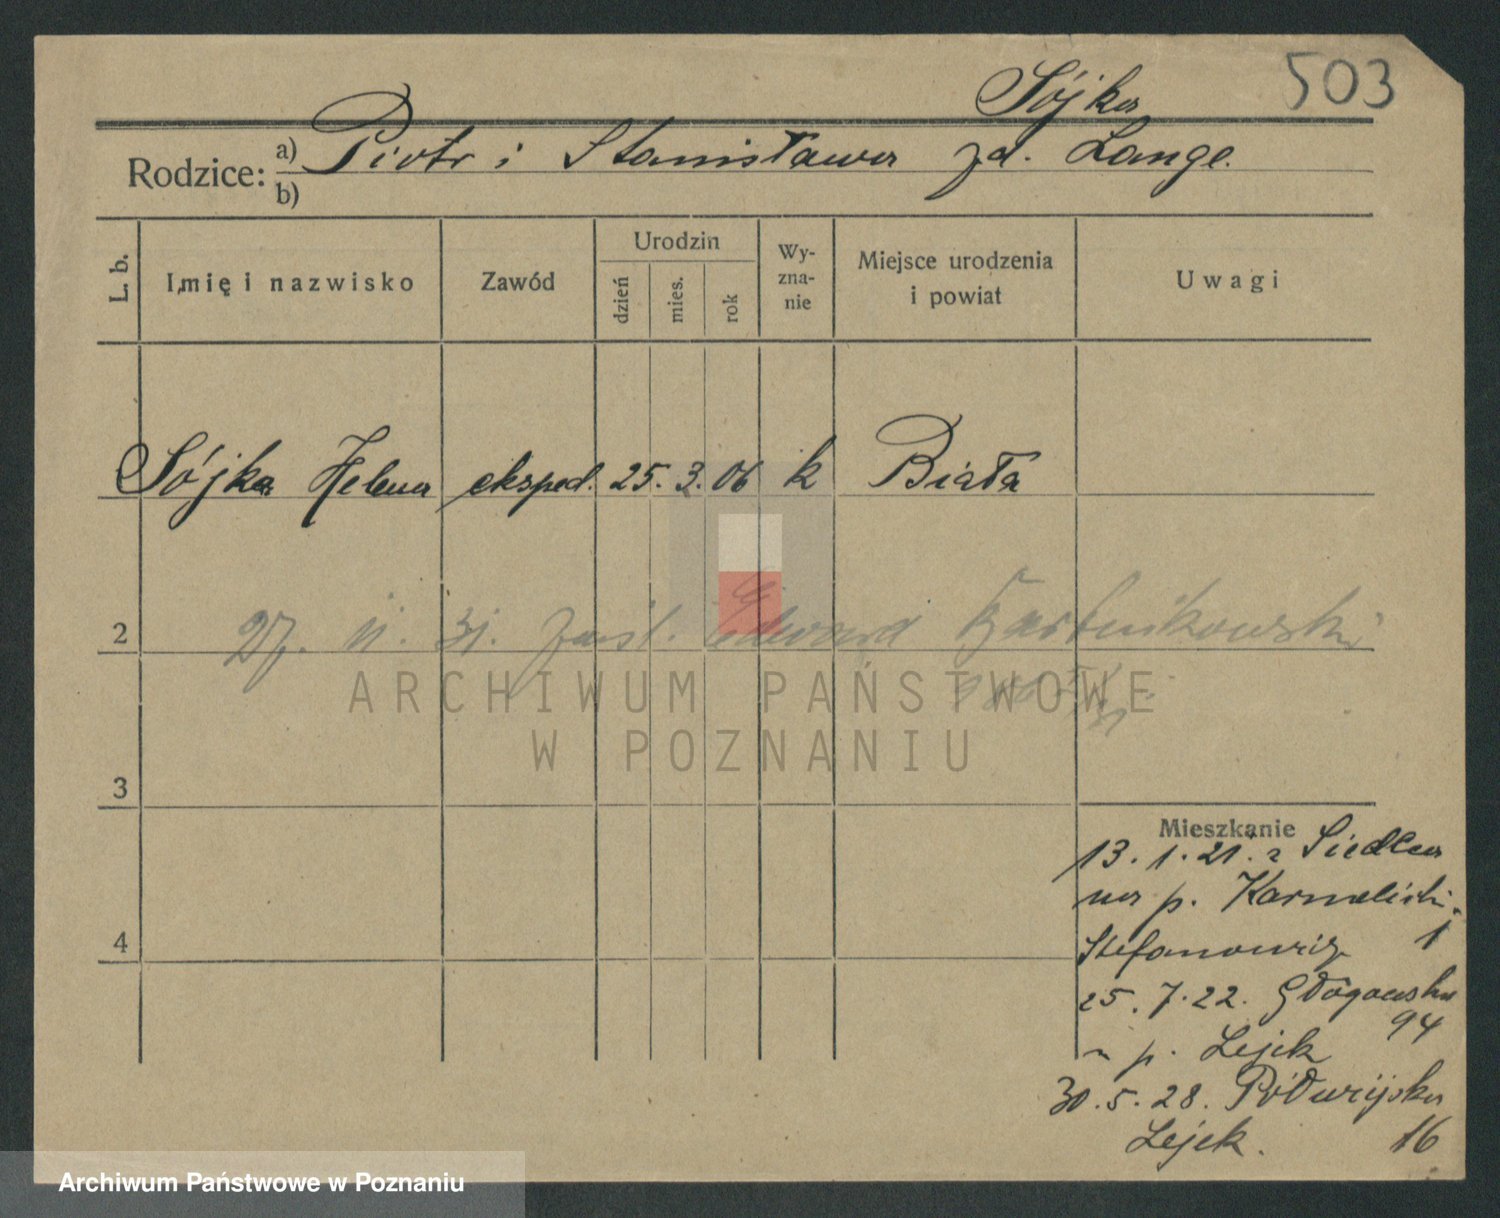 503
Sójka
Rodzice: a) Piotr i Stanisława zd. Lange.
b)
L. b.
Imię i nazwisko
Zawód
Urodzin
dzień
mies.
rok
Wy-
zna-
nie
Miejsce urodzenia
i powiat
Uwagi
Sójka Helena eksped. 25. 3. 06 k Biała
2 27. 11. 31. zaśl. Edward
ARCHIWUM PAŃSTWOWE
W POZNANIU
3
Mieszkanie
13. 1. 21. z Siedlca
na p. Karmelicki
Stefanowicz 1
4
25. 7. 22. Głogowska
94
p. Lejek
30. 5. 28. Półwiejska
Lejek. 16
Archiwum Państwowe w Poznaniu